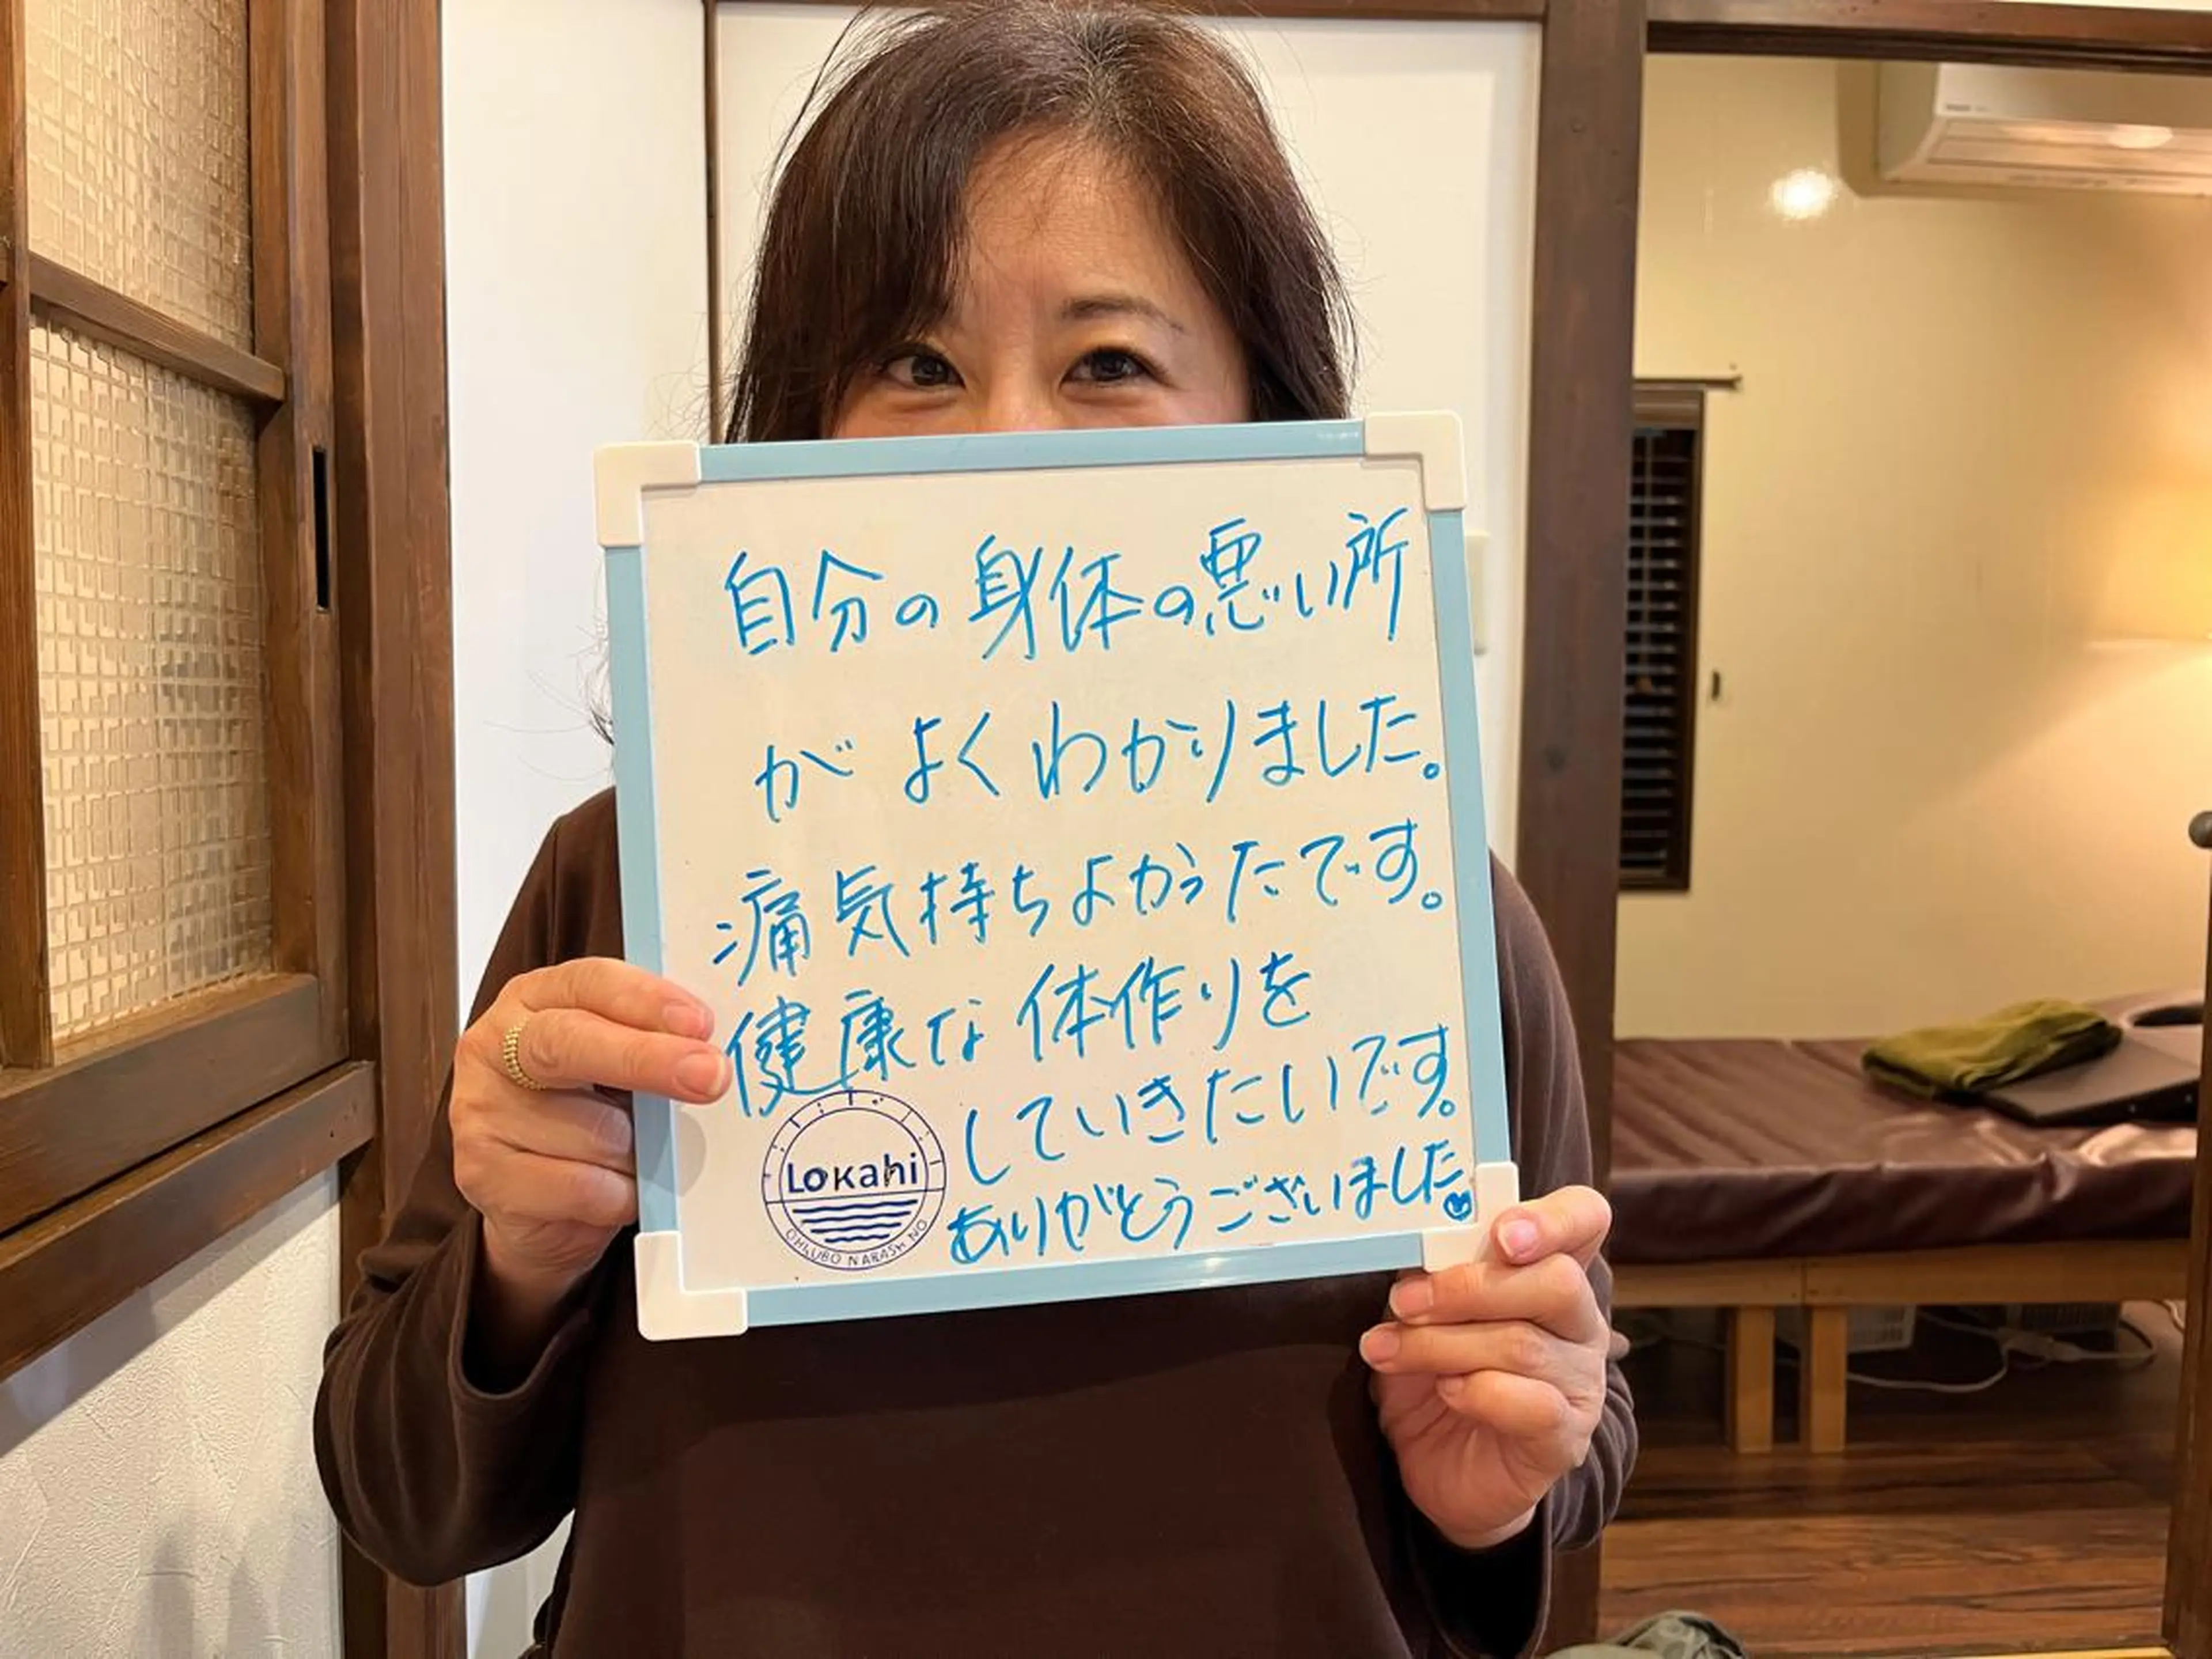 自分の身体の悪い所
がよくわかりました。
痛気持ちよかったです。
健康な体作りを
していきたいです。
ありがとうございました
Lokahi
OHKUBO NARASHINO